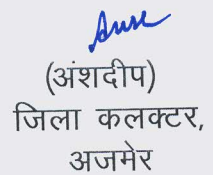 (अंशदीप)
जिला कलक्टर,
अजमेर